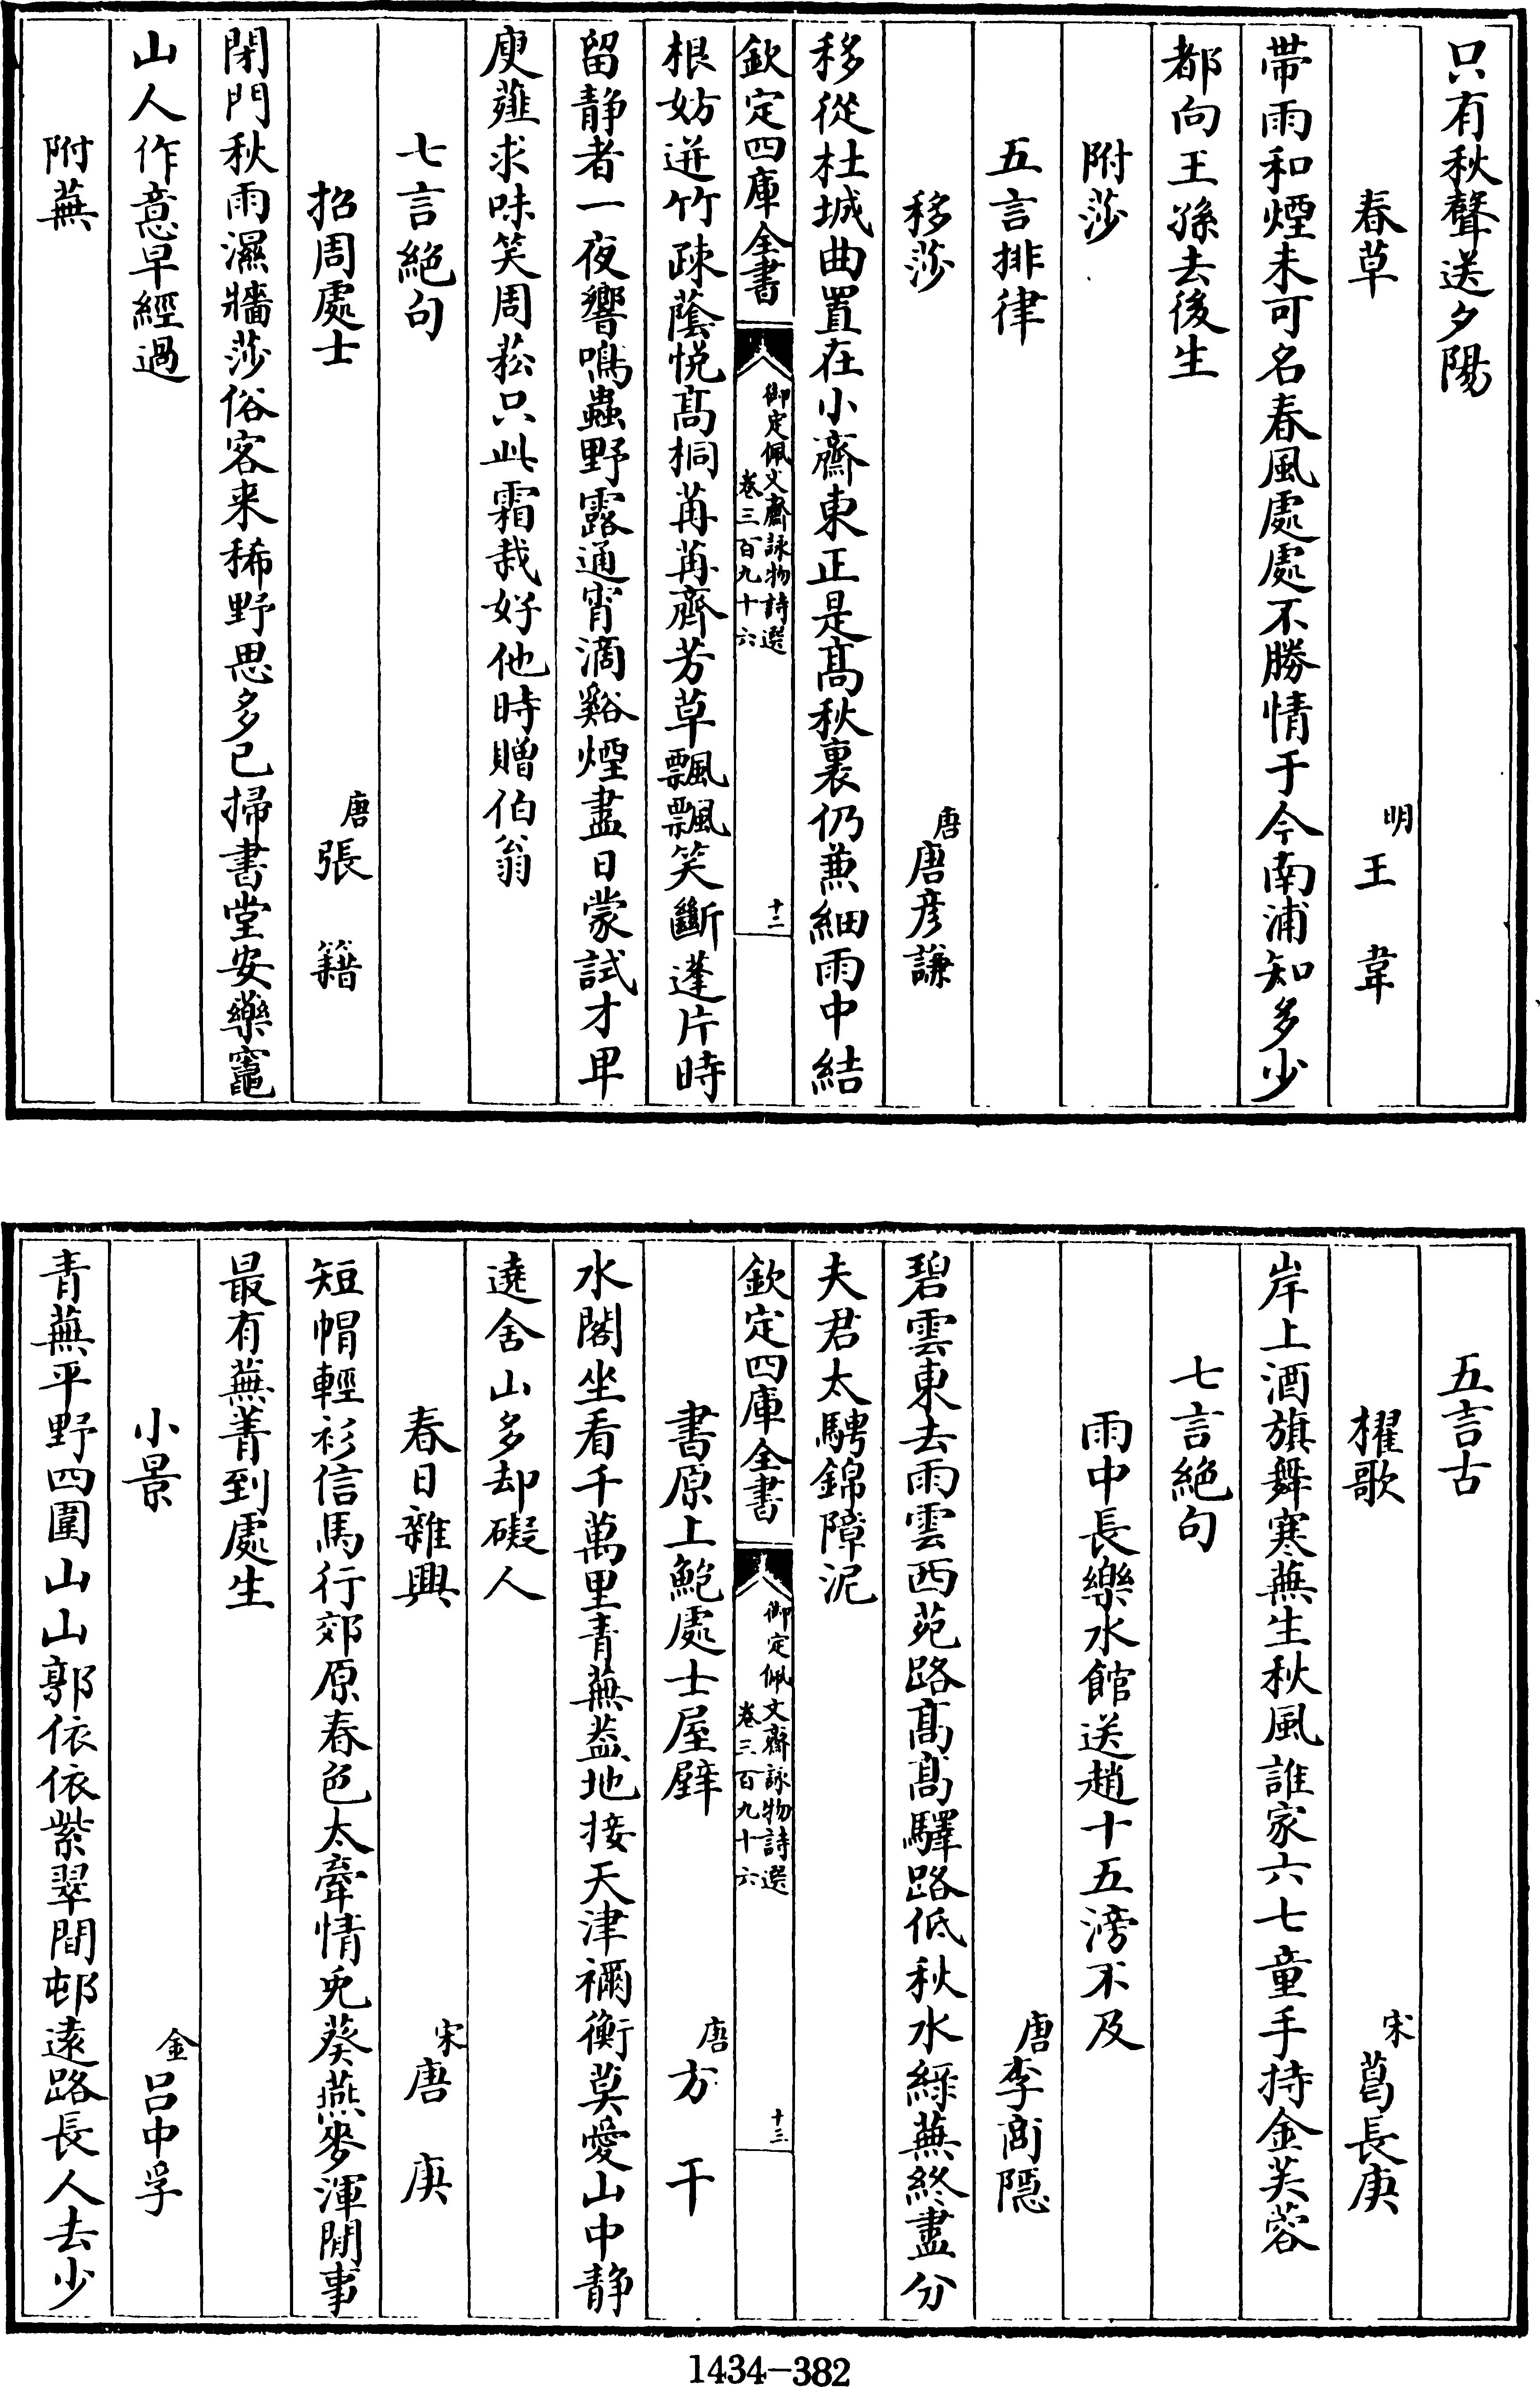 只有秋聲送夕陽
春草　明王韋
帶雨和煙未可名春風處處不勝情于今南浦知多少
都向王孫去後生
附莎
五言排律
移莎　唐唐彦謙
移從杜城曲置在小齋東正是髙秋裏仍兼細雨中結
欽定四庫全書
御定佩文齋詠物詩選
卷三百九十六
十二
根妨迸竹疎蔭悦髙桐苒苒齊芳草飄飄笑斷蓬片時
留静者一夜響鳴蟲野露通宵滴谿煙盡日蒙試才卑
庾薤求味笑周菘只此霜栽好他時贈伯翁
七言絶句
招周處士　唐張籍
閉門秋雨濕牆莎俗客来稀野思多已掃書堂安藥竈
山人作意早經過
附蕪
五言古
櫂歌　宋葛長庚
岸上酒旗舞寒蕪生秋風誰家六七童手持金芙蓉
七言絶句
雨中長樂水館送趙十五滂不及
唐李商隱
碧雲東去雨雲西苑路髙髙驛路低秋水綠蕪終盡分
夫君太騁錦障泥
欽定四庫全書
御定佩文齋詠物詩選
卷三百九十六
十三
書原上鮑處士屋壁　唐方干
水閣坐看千萬里青蕪葢地接天津禰衡莫愛山中静
遶舍山多却礙人
春日雜興　宋唐庚
短帽輕衫信馬行郊原春色太牽情兎葵燕麥渾閒事
最有蕪菁到處生
小景　金呂中孚
青蕪平野四圍山山郭依依紫翠間邨遠路長人去少
1434-382